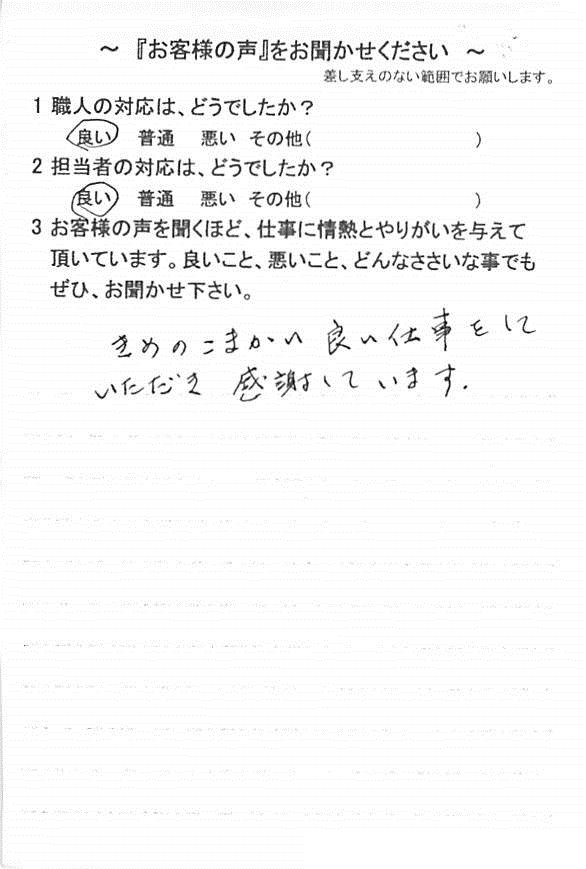 ～ 『お客様の声』をお聞かせください ～
差し支えのない範囲でお願いします。
1 職人の対応は、どうでしたか？
良い 普通 悪い その他( )
2 担当者の対応は、どうでしたか？
良い 普通 悪い その他( )
3 お客様の声を聞くほど、仕事に情熱とやりがいを与えて
頂いています。良いこと、悪いこと、どんなささいな事でも
ぜひ、お聞かせ下さい。
きめのこまかい良い仕事をして
いただき 感謝しています.